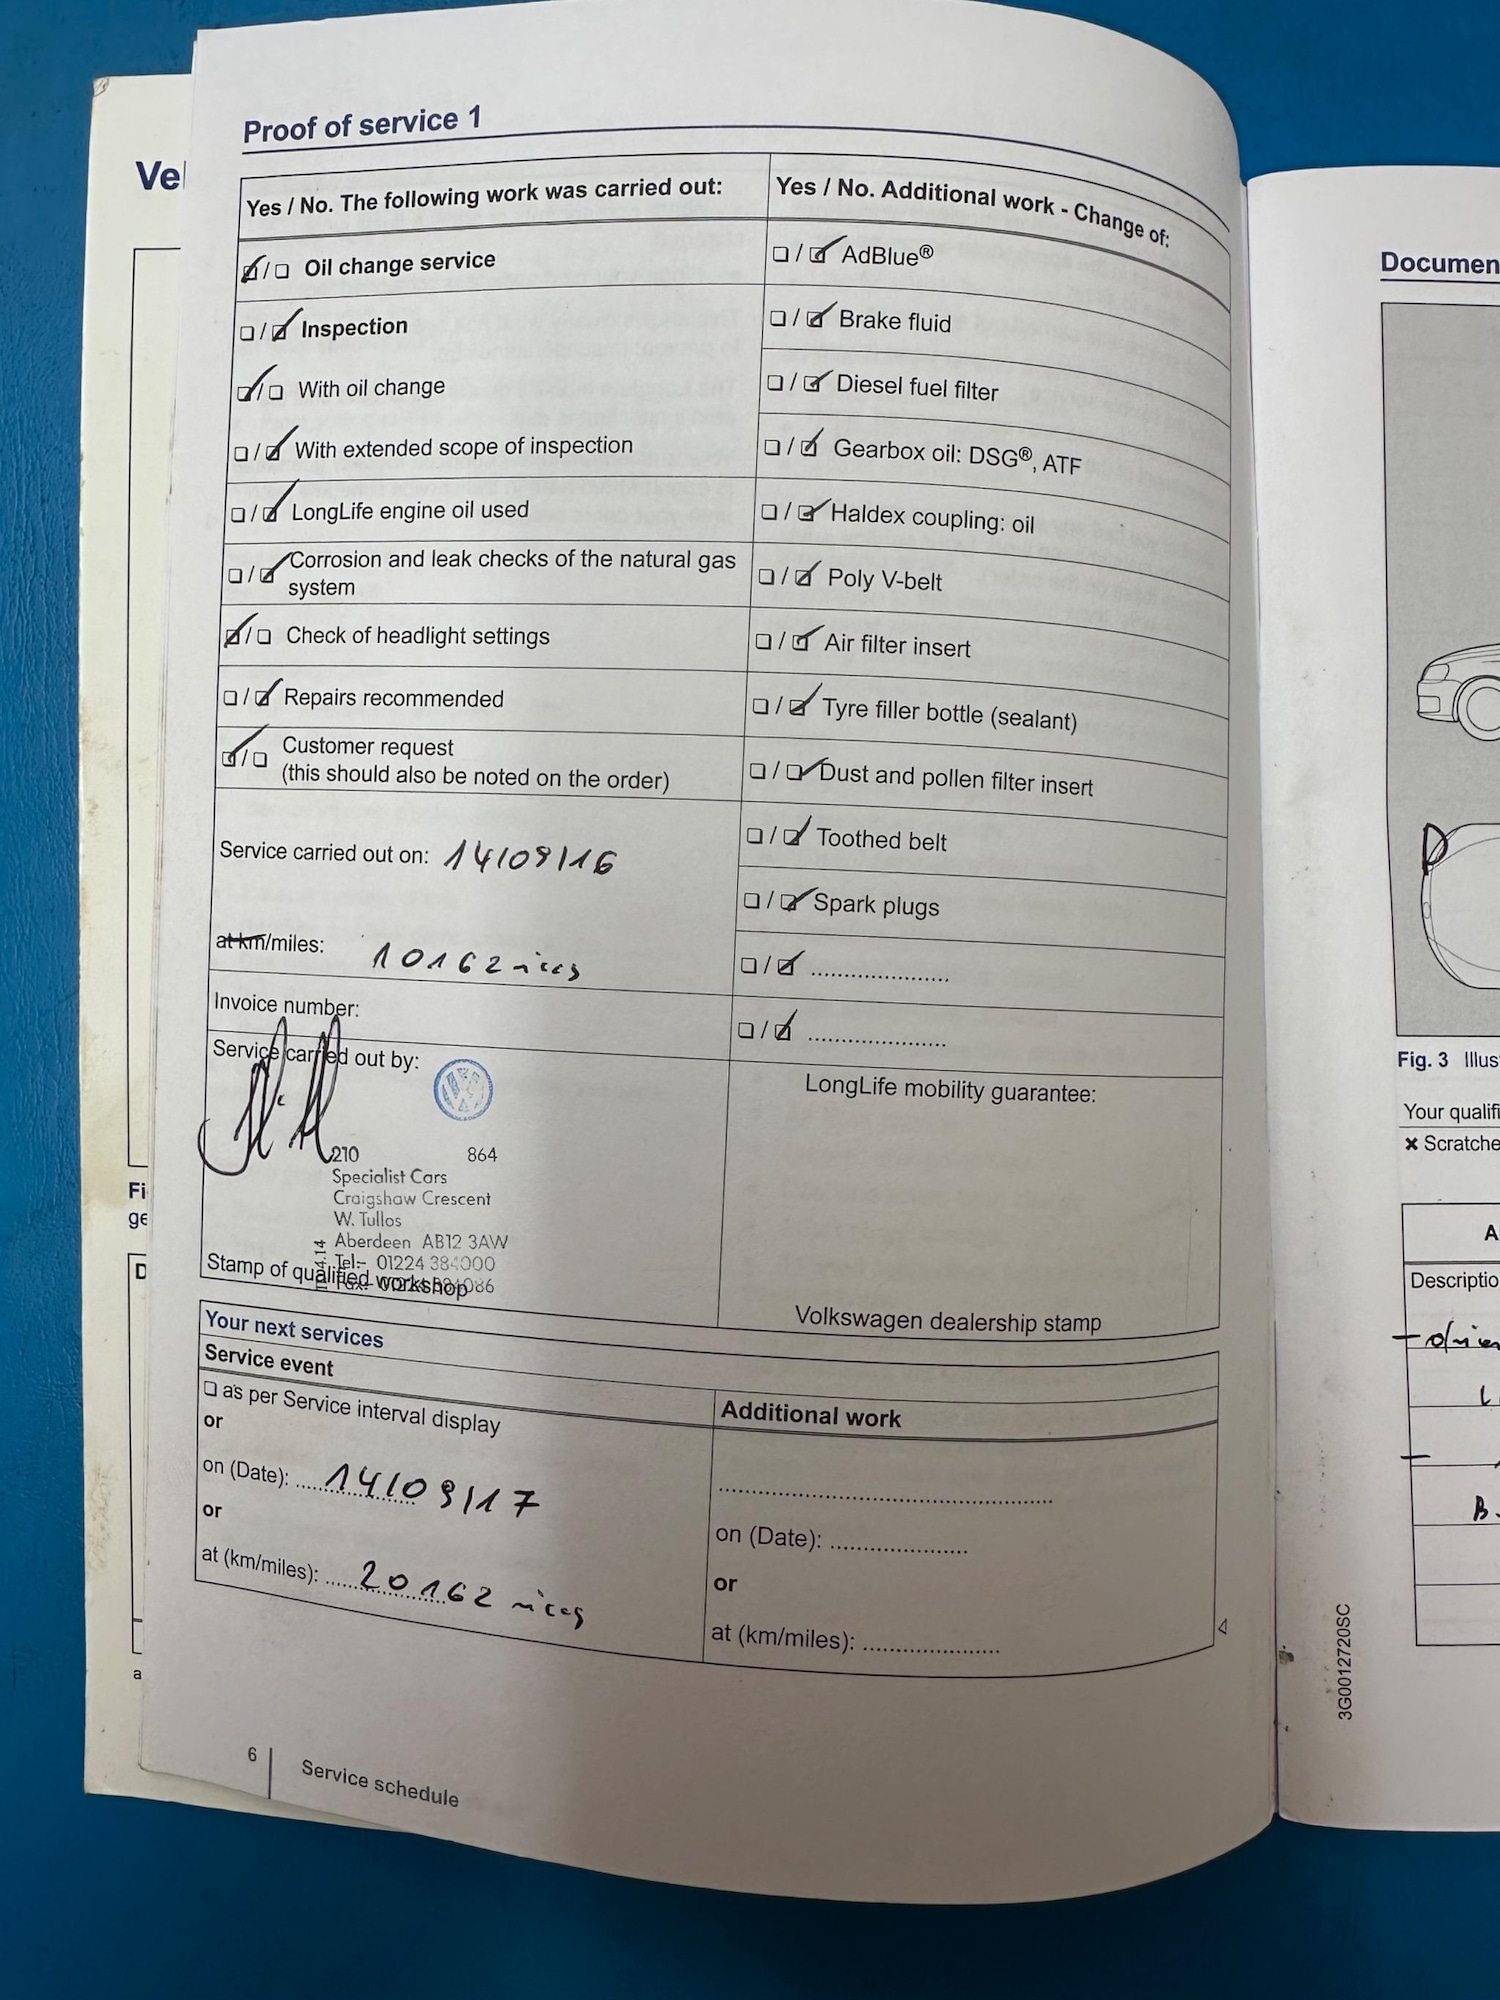 Proof of service 1
Yes / No. The following work was carried out:
☑/☐ Oil change service
☐/☑ Inspection
☑/☐ With oil change
☐/☑ With extended scope of inspection
☐/☑ LongLife engine oil used
☐/☑ Corrosion and leak checks of the natural gas
system
☑/☐ Check of headlight settings
☐/☑ Repairs recommended
☑/☐ Customer request
(this should also be noted on the order)
Service carried out on: 14/09/16
at km/miles: 10162 miles
Invoice number:
Service carried out by:
210 864
Specialist Cars
Craigshaw Crescent
W. Tullos
Aberdeen AB12 3AW
Tel:- 01224 384000
Stamp of qualified workshop
Yes / No. Additional work - Change of:
☐/☑ AdBlue®
☐/☑ Brake fluid
☐/☑ Diesel fuel filter
☐/☑ Gearbox oil: DSG®, ATF
☐/☑ Haldex coupling: oil
☐/☑ Poly V-belt
☐/☑ Air filter insert
☐/☑ Tyre filler bottle (sealant)
☐/☑ Dust and pollen filter insert
☐/☑ Toothed belt
☐/☑ Spark plugs
☐/☑ ......................
☐/☑ ......................
LongLife mobility guarantee:
Volkswagen dealership stamp
Your next services
Service event
☐ as per Service interval display
or
on (Date): 14/09/17
or
at (km/miles): 20162 miles
Additional work
on (Date): ......................
or
at (km/miles): ......................
6 Service schedule
Ve
Fi
ge
D
a
Documen
Fig. 3 Illus
Your qualifi
✖ Scratche
A
Descriptio
B.
3G0012720SC